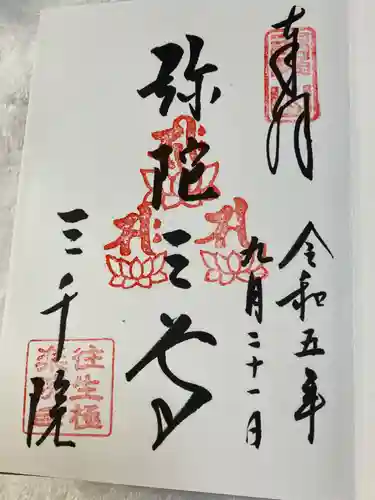 奉拝
令和五年
九月二十一日
弥陀三尊
三千院
往生極